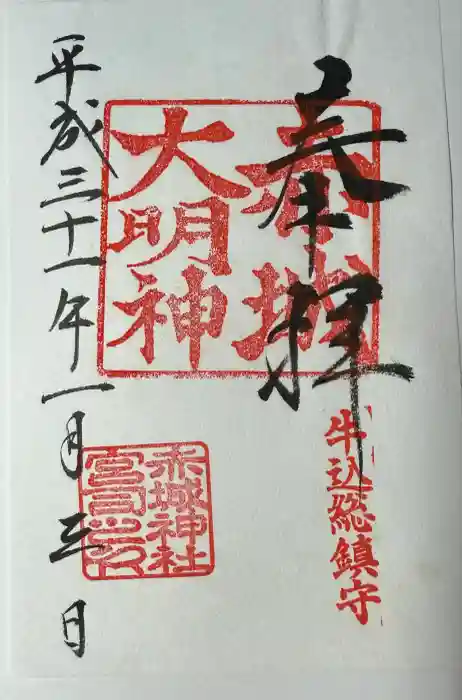 奉拝
牛込総鎮守
赤城
大明神
赤城神社
宮司之印
平成三十一年一月三日